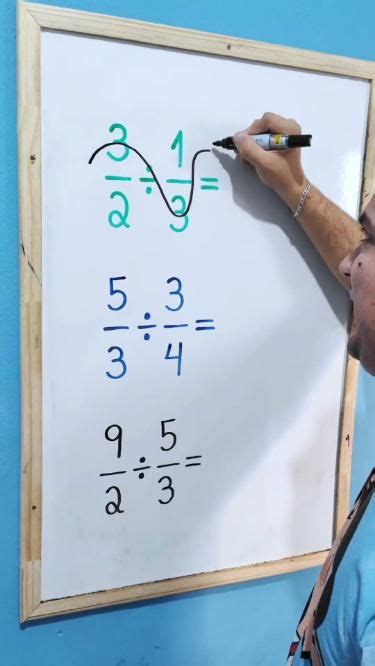 3/2 ÷ 1/3 =
5/3 ÷ 3/4 =
9/2 ÷ 5/3 =